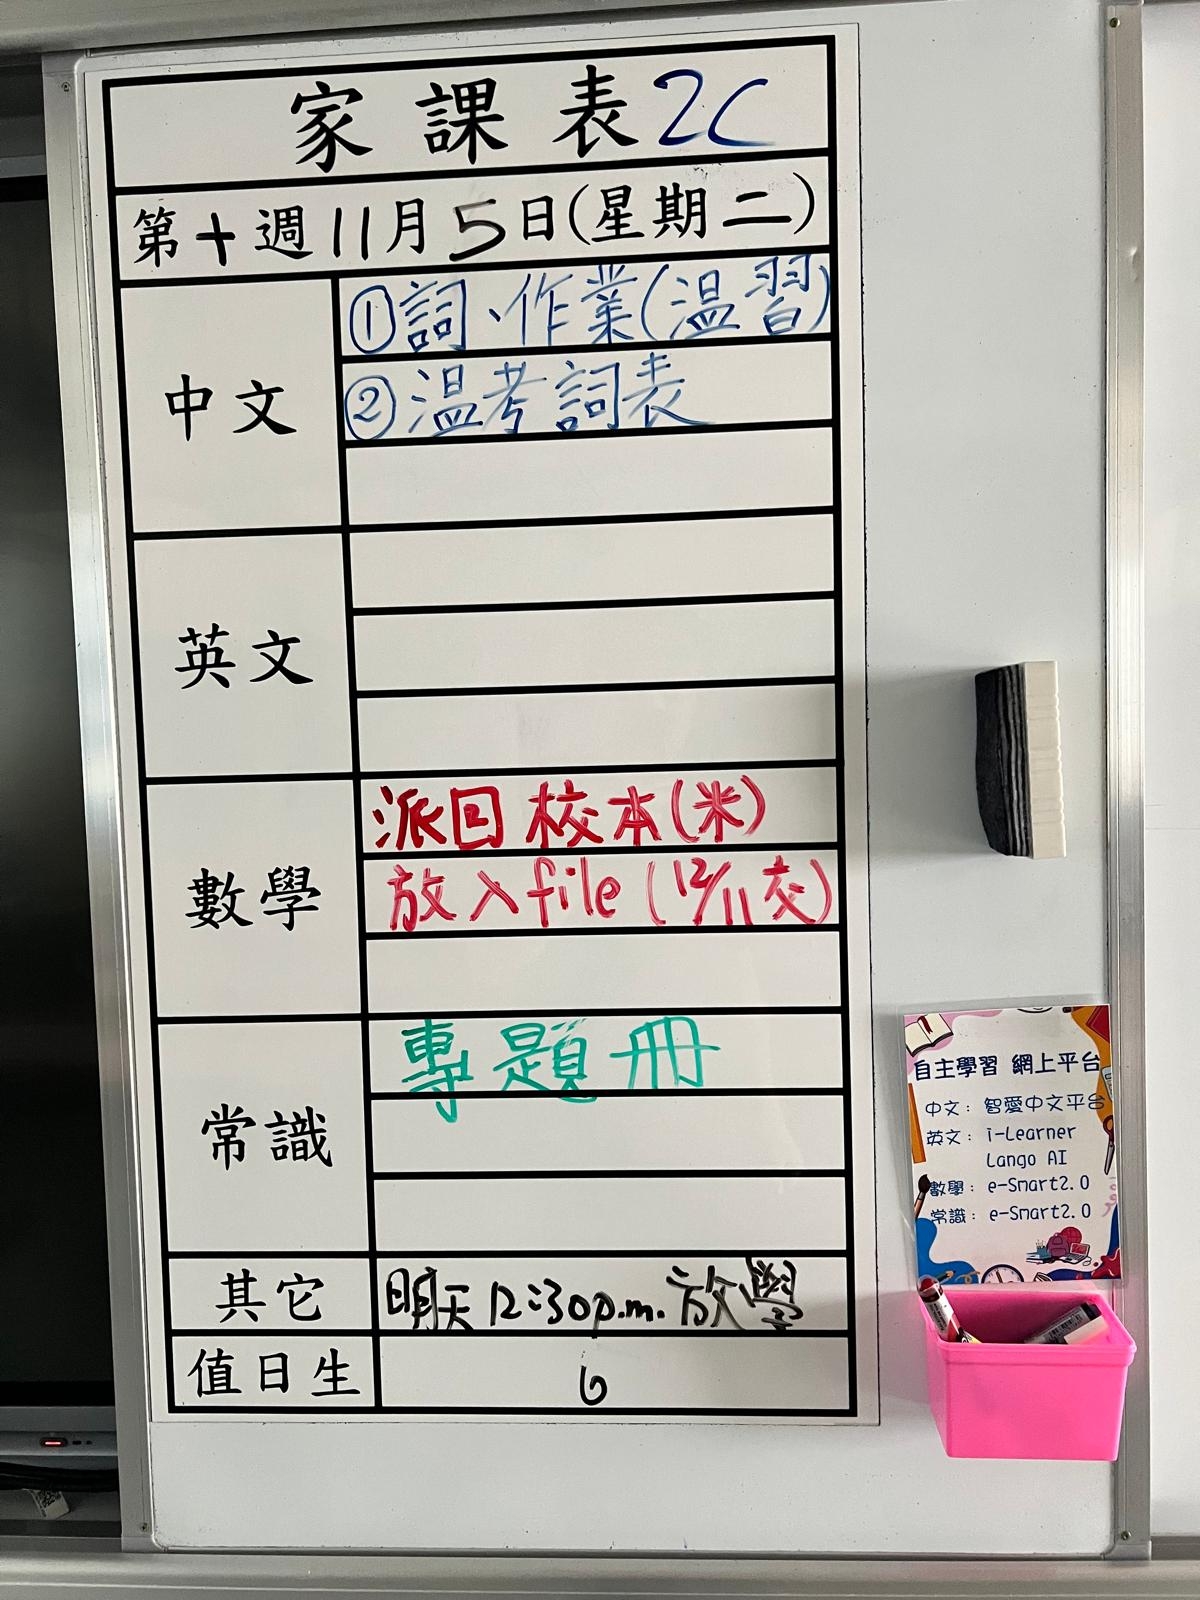 家課表 2C
第十週11月5日(星期二)
中文
①詞、作業(温習)
②温考詞表
英文
數學
派回校本(米)
放入file(12/11交)
常識
專題冊
其它
明天12:30p.m.放學
值日生
6
自主學習 網上平台
中文：智愛中文平台
英文：i-Learner
Lango AI
數學：e-Smart2.0
常識：e-Smart2.0